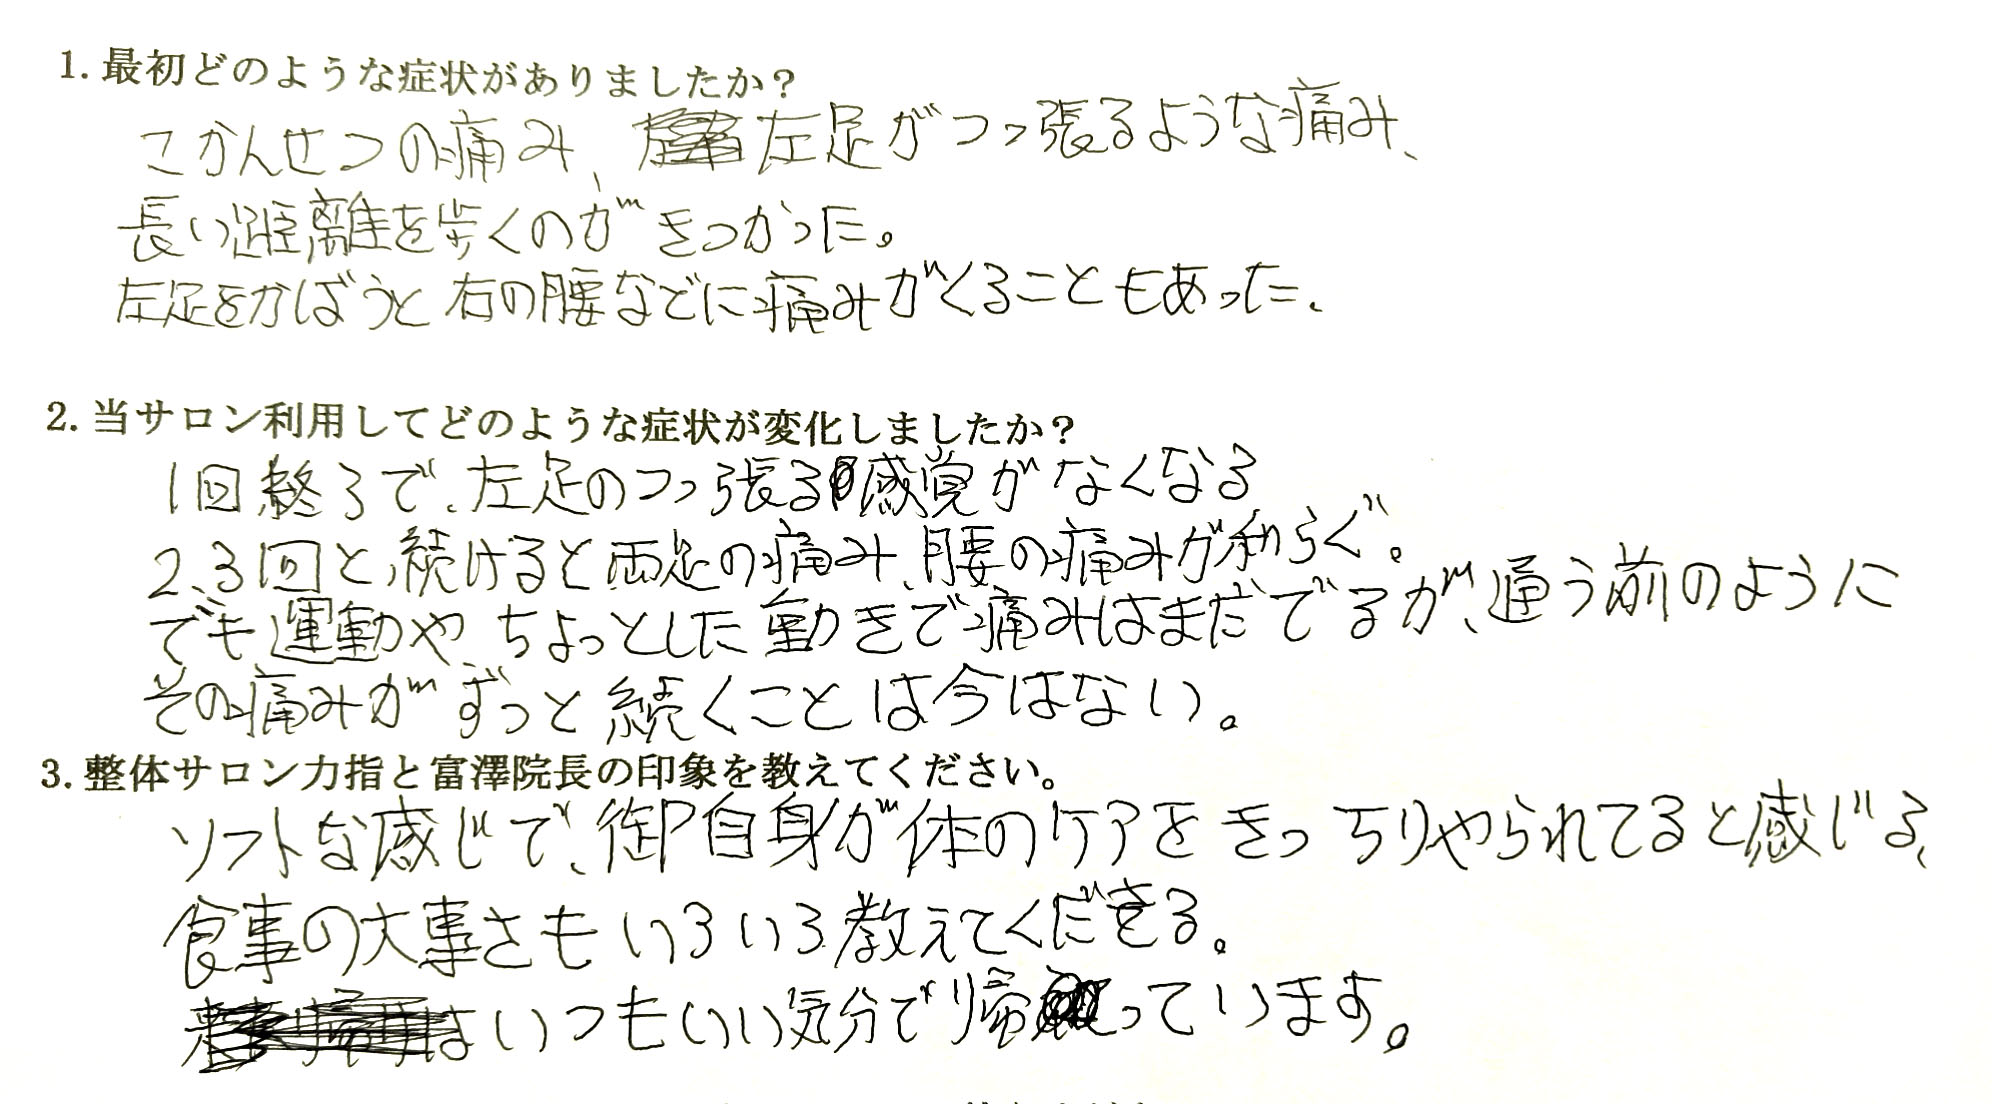 1. 最初どのような症状がありましたか？
こかんせつの痛み、左足がつっ張るような痛み、
長い距離を歩くのがきつかった。
左足をかばうと右の腰などに痛みがくることもあった、
2. 当サロン利用してどのような症状が変化しましたか？
1回終了で、左足のつっ張る感覚がなくなる
2、3回と続けると両足の痛み、腰の痛みが和らぐ。
でも運動やちょっとした動きで痛みはまだでるが、通う前のように
その痛みがずっと続くことは今はない。
3. 整体サロン力指と富澤院長の印象を教えてください。
ソフトな感じで、御自身が体のケアをきっちりやられてると感じる、
食事の大事さもいろいろ教えてくださる。
いつもいい気分で帰っています。